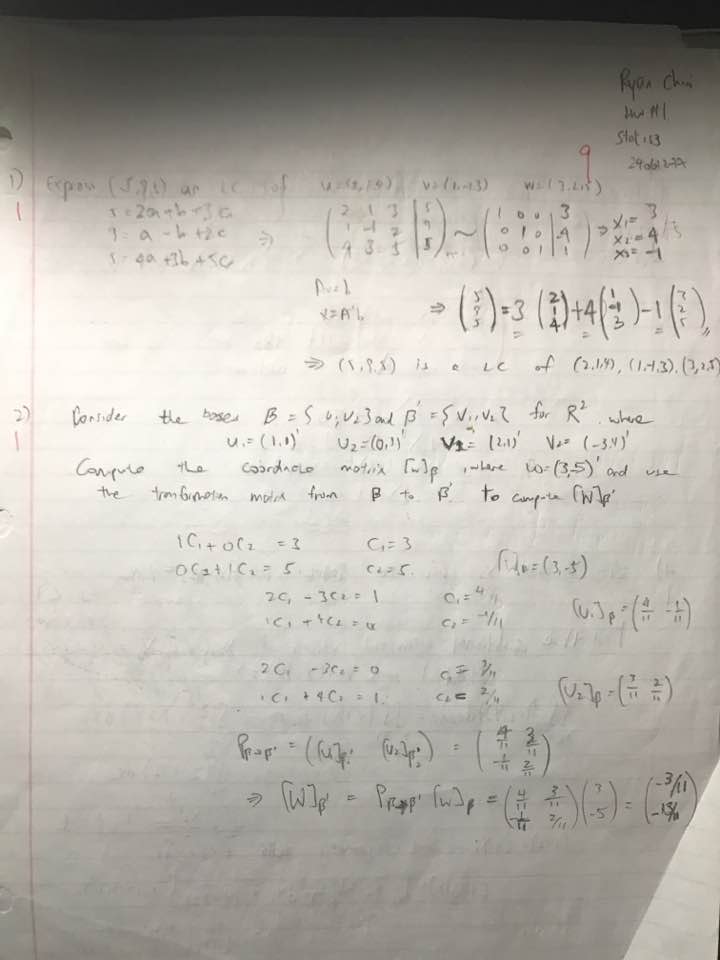 Ryan Chin
HW #1
Slot: 13
9
1) Express (5,9,5) as LC of u=(2,1,4) v=(1,-1,3) w=(3,2,5)
1
5 = 2a + b + 3c
9 = a - b + 2c ⇒ (2 1 3 | 5; 1 -1 2 | 9; 4 3 5 | 5) ~ (1 0 0 | 3; 0 1 0 | -4; 0 0 1 | 1) ⇒ x₁= 3 x₂= 4 x₃= -1
5 = 4a + 3b + 5c
Av=b
x=A⁻¹b ⇒ (5 9 5) = 3 (2 1 4) + 4 (1 -1 3) - 1 (3 2 5)
⇒ (5,9,5) is a LC of (2,1,4), (1,-1,3), (3,2,5)
2) Consider the bases B = {u₁,u₂} and B' = {v₁,v₂} for R², where
1
u₁ = (1,0)' u₂ = (0,1)' v₁ = (2,1)' v₂ = (-3,4)'
Compute the coordinate matrix [w]β, where w=(3,-5)' and use
the transformation matrix from B to B' to compute [W]β'
1C₁ + 0C₂ = 3 C₁ = 3
0C₁ + 1C₂ = 5. C₂ = 5. [W]β = (3,-5)
2C₁ - 3C₂ = 1 C₁ = 4/11
1C₁ + 4C₂ = 0 C₂ = -1/11 [U₁]β = (4/11 -1/11)
2C₁ - 3C₂ = 0 C₁ = 3/11
1C₁ + 4C₂ = 1. C₂ = 2/11 [U₂]β = (3/11 2/11)
Pβ→β' = ([U]β' [U₂]β') = (4/11 3/11; -1/11 2/11)
⇒ [W]β' = Pβ→β' [W]β = (4/11 3/11; -1/11 2/11) (3 -5) = (-3/11 -13/11)